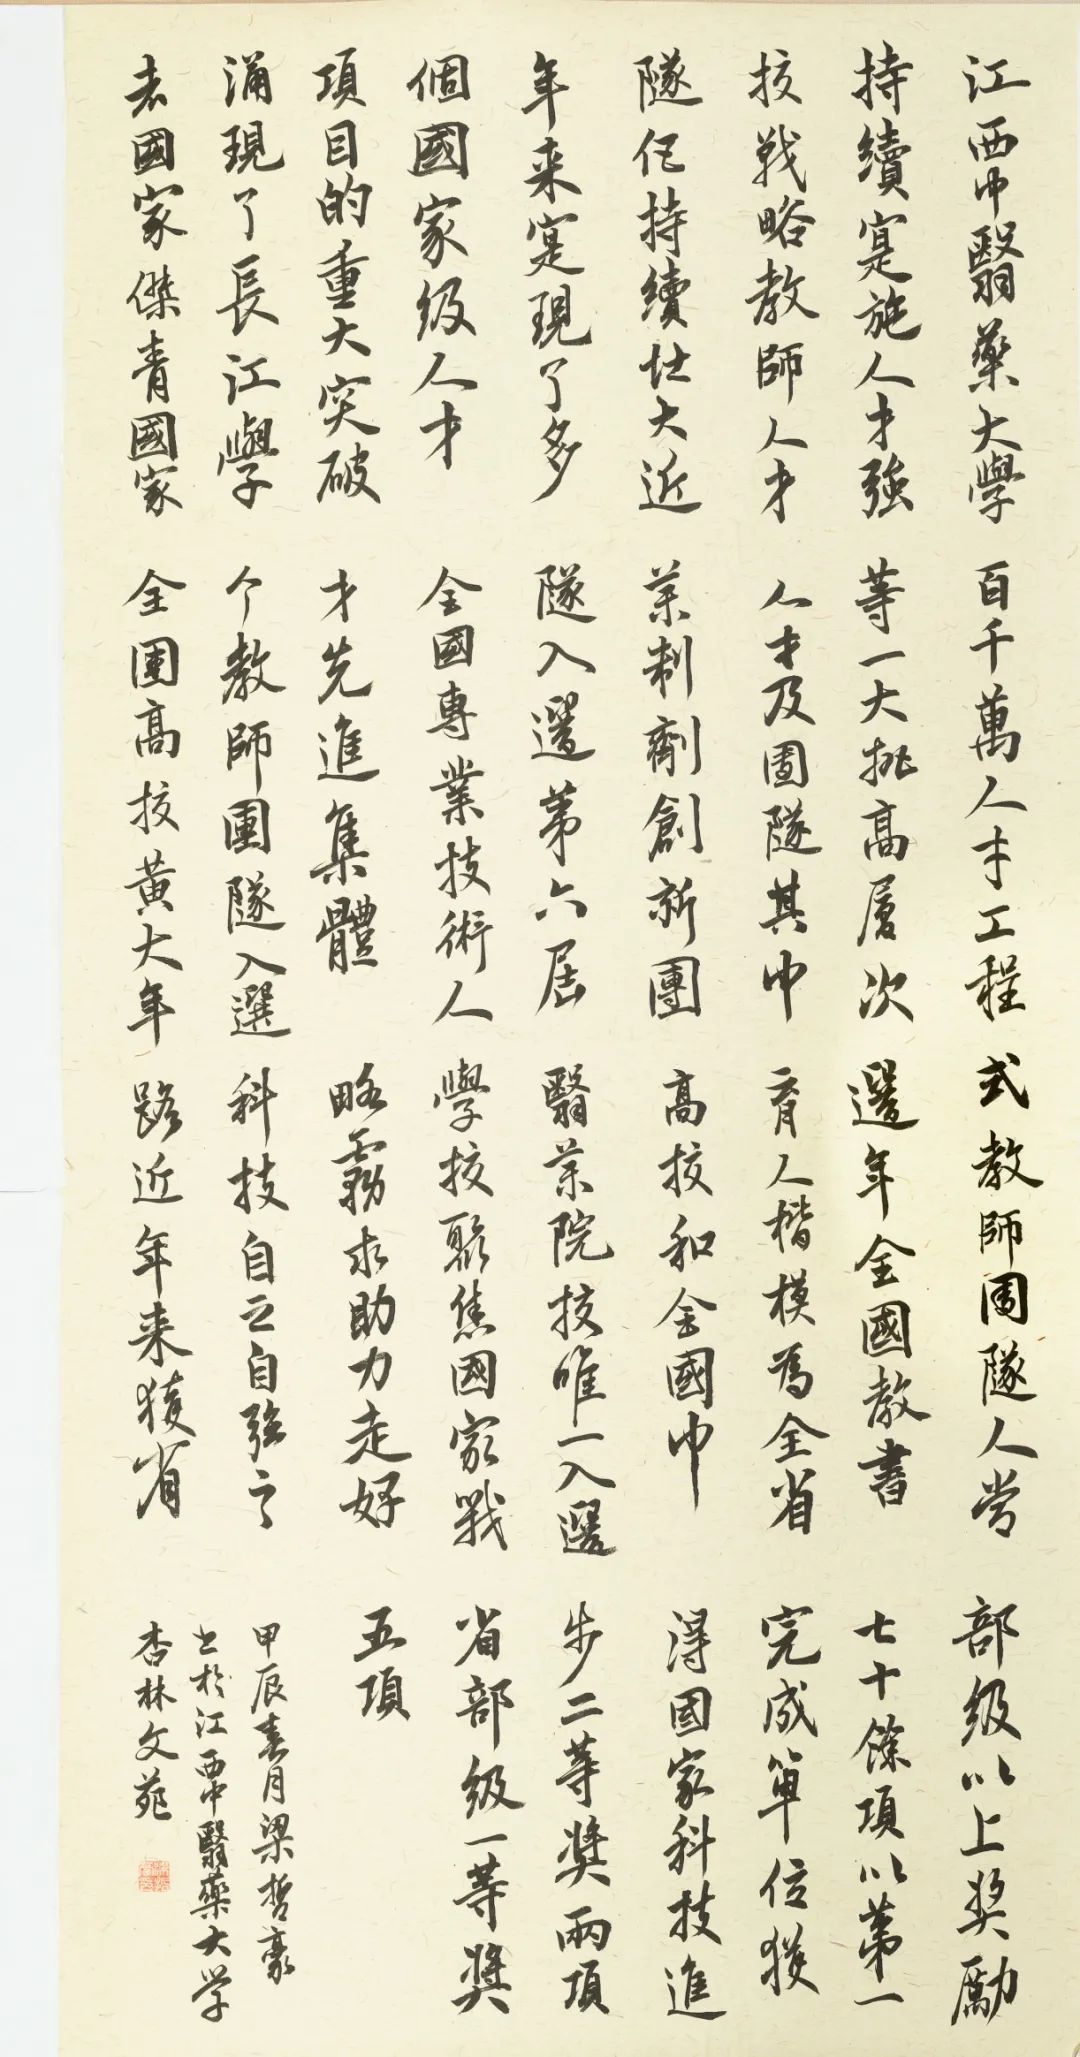 江西中醫藥大學
持續寔施人才強
校戰略教師人才
隊伍持續壯大近
年来寔現了多
個國家级人才
項目的重大突破
涌現了長江學
者國家傑青國家
百千萬人才工程
等一大批高層次
人才及團隊其中
葯制劑創新團
隊入選第六屆
全國專業技術人
才先進集體
个教師團隊入選
全國高校黃大年
式教師團隊人嘗
選年全國教書
育人楷模為全省
高校和全國中
醫葯院校唯一入選
學校聚焦國家戰
略需求助力走好
科技自立自強之
路近年来獲省
部级以上奖勵
七十餘項以第一
完成單位獲
得國家科技進
步二等獎兩項
省部级一等獎
五項
甲辰春月梁哲豪
书於江西中醫藥大学
杏林文苑